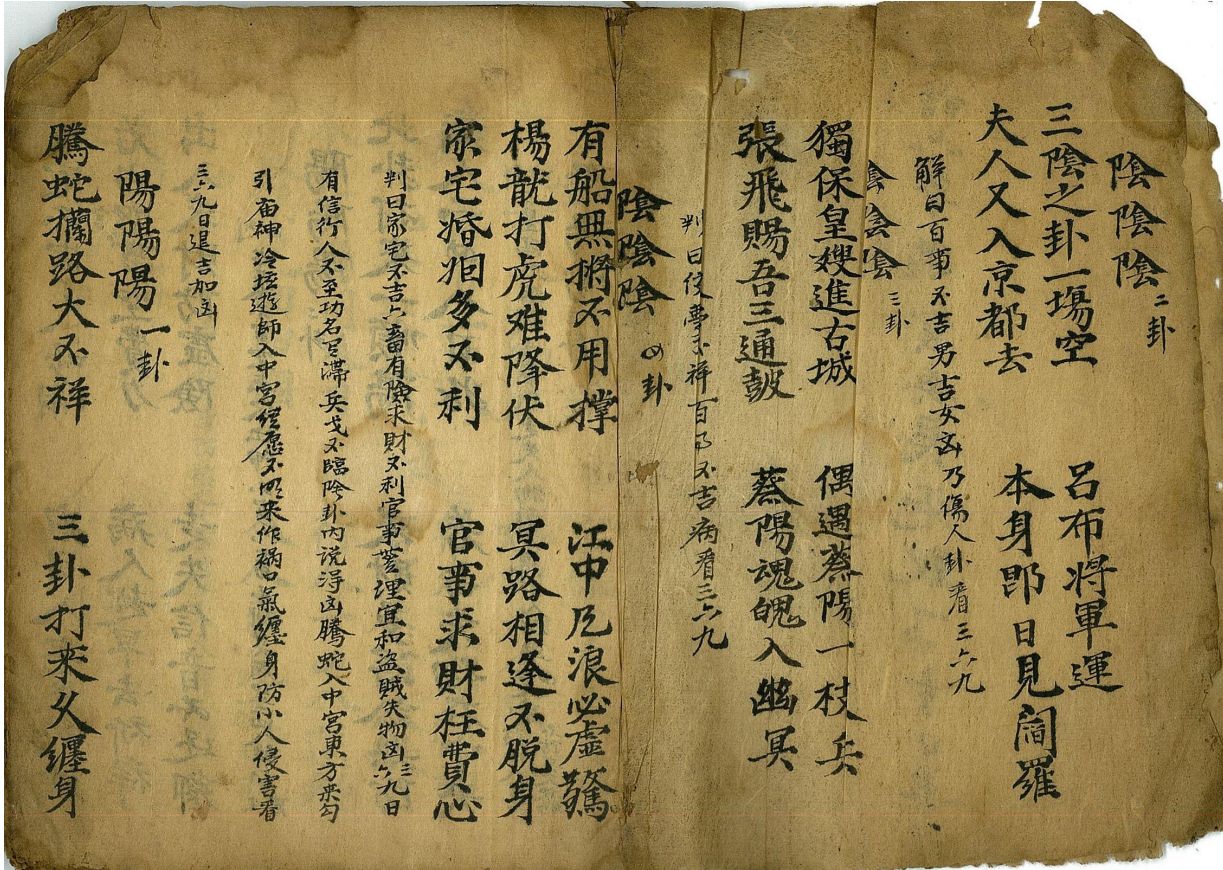 陰陰陰 二卦
三陰之卦一塲空 呂布将軍運
夫人又入京都去 本身即日見閻羅
解曰百事不吉男吉女凶乃傷人卦看三六九
陰陰陰 三卦
獨保皇嫂進古城 偶遇蔡陽一枝兵
張飛賜吾三通皷 蔡陽魂魄入幽冥
判曰 夢不祥百事不吉病看三六九
陰陰陰 四卦
有船無撐不用撑 江中 浪必虛驚
楊龍打虎难降伏 冥路相逢不脱身
家宅婚姻多不利 官事求財枉費心
判曰家宅不吉六畜有險求財不利官事 理宜和盗賊失物凶三六九日
有信行人不至功名 滞兵戈不臨陰卦内説得凶騰蛇入中宮東方来勾
引庙神冷壇遊師入中宮 愿不明来作禍口氣纏身防小人侵害看
三六九日退吉加凶
陽陽陽 一卦
騰蛇攔路大不祥 三卦打来久纏身